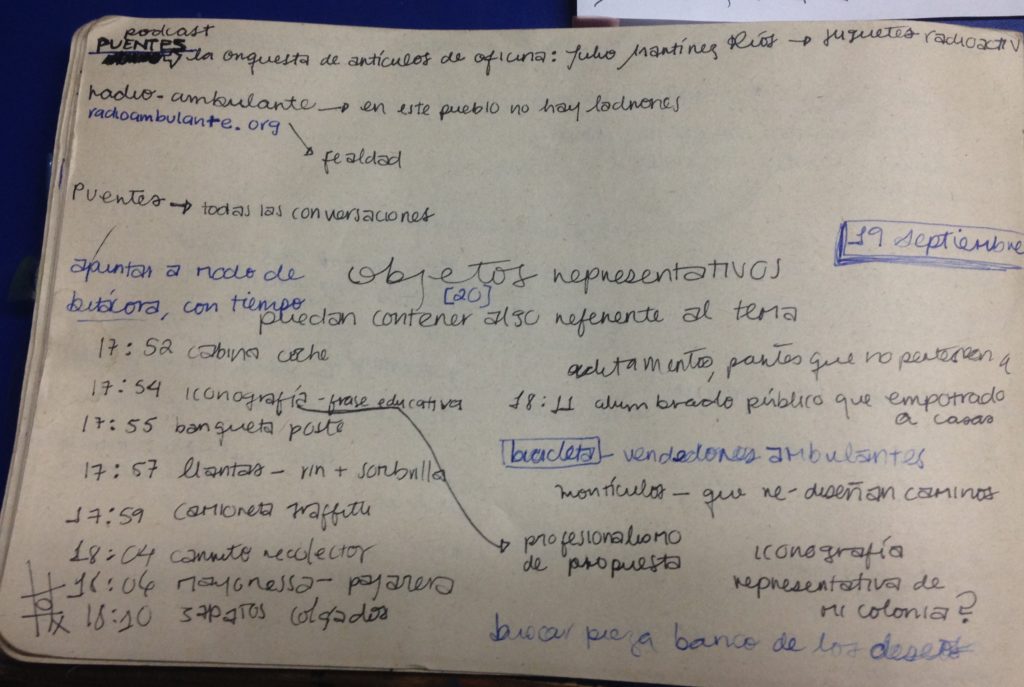 podcast
PUENTES
→ la orquesta de artículos de oficina: Julio Martínez Ríos → juguetes radioactiv
radio-ambulante → en este pueblo no hay ladrones
radioambulante.org
fealdad
Puentes → todas las conversaciones
19 septiembre
apuntar a modo de
bitácora, con tiempo
objetos representativos
[20]
puedan contener algo referente al tema
17:52 cabina coche
17:54 iconografía - frase educativa
17:55 banqueta poste
17:57 llantas - rin + sombrilla
17:59 camioneta graffiti
18:04 carrito recolector
18:06 mayonessa - pajarera
18:10 zapatos colgados
aditamentos, partes que no pertenecen a
18:11 alumbrado público que empotrado
a casas
bicicleta - vendedores ambulantes
montículos - que re-diseñan caminos
profesionalismo
de propuesta
iconografía
representativa de
mi colonia?
buscar pieza banco de los